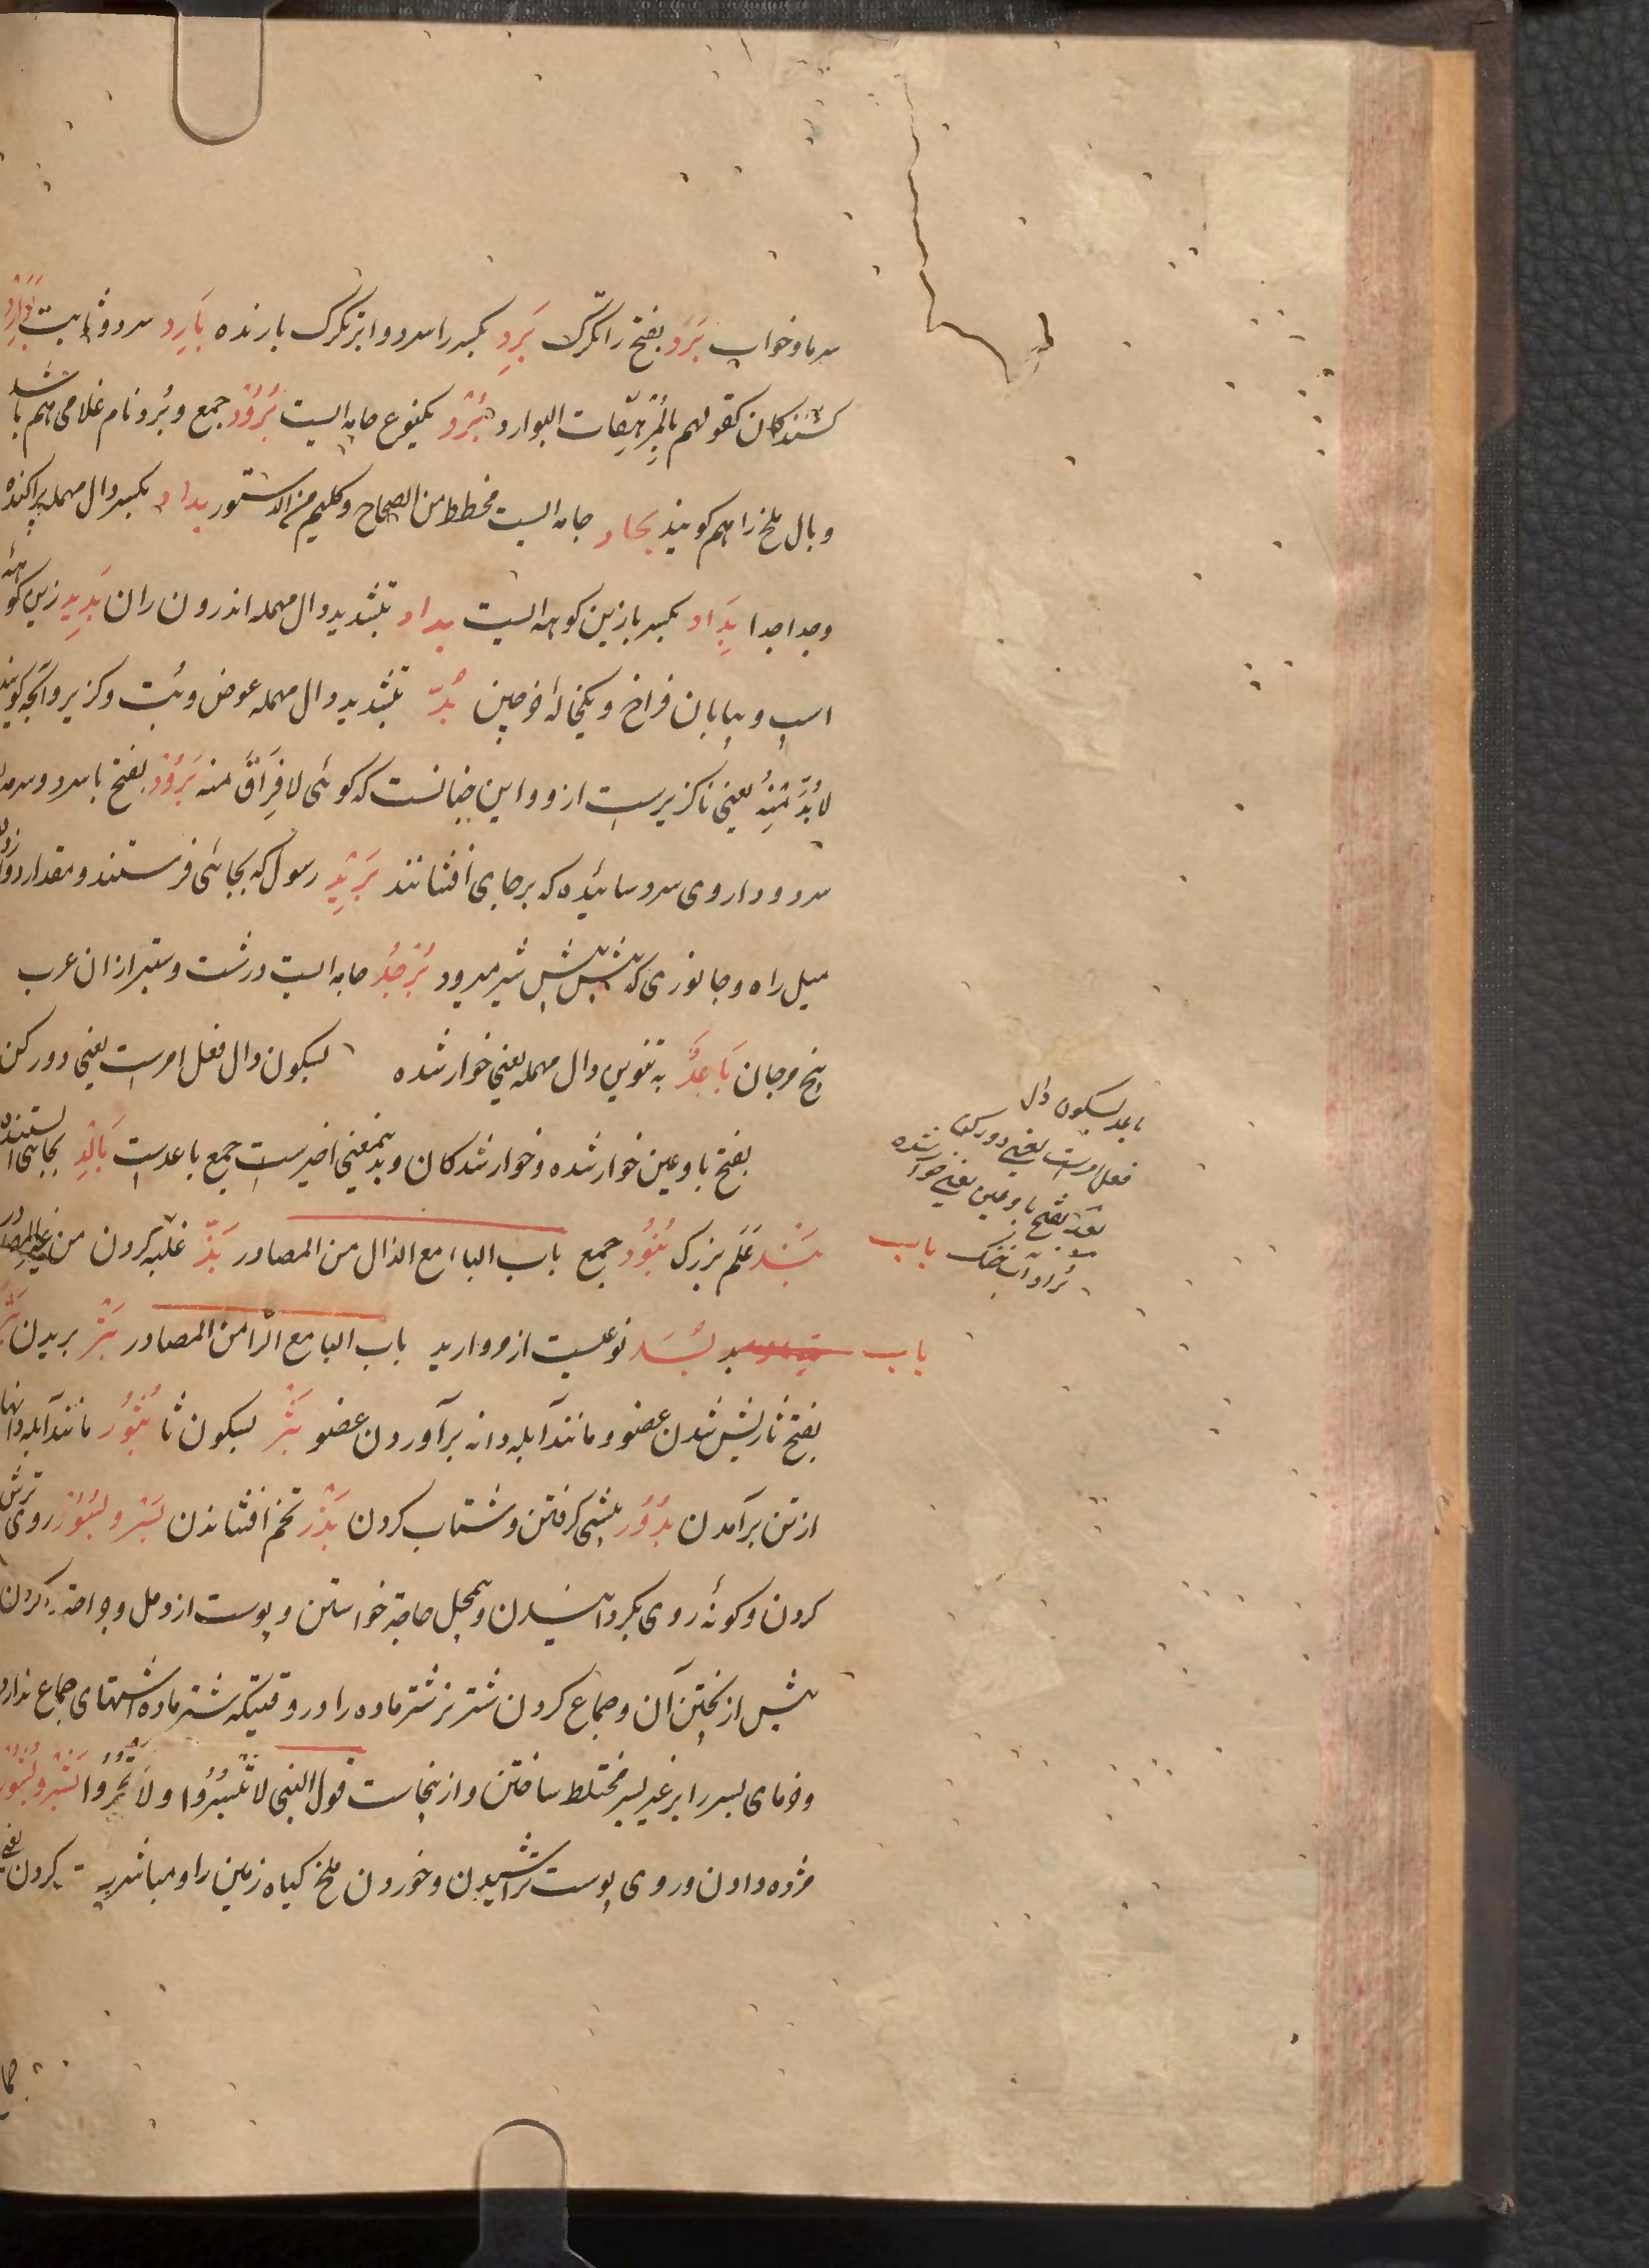 سرما و خواب بَرَد بفتح را تگرگ بَرِد بکسر را سرد و ابر تگرگ بارنده بَارِد سرد و ثابت بَوَارِد
کشندکان کقولهم بالمُرْهِقات البوارد بُرْد یکنوع جامه ایست بُرُوْد جمع و بُرد نام غلامی هم باشد
و بال ملخ را هم کویند بجاد جامه ایست مخطط من الصحاح و کلیم من الدستور بداد بکسر دال مهمله پراکنده
و جدا جدا بِدَاد بکسر با زین کوهه ایست بداد بتشدید دال مهمله اندرون ران بَدِید زین کوهه
اسپ و بیابان فراخ و یکخانه خرجین بُدّ بتشدید دال مهمله عوض و بُت و کزیر و آنچه کویند
لا بُدَّ مِنْهُ یعنی ناکزیرست ازو و این چنانست که کوئی لا فِرَاقَ منه بَرُوْد بفتح با سرد و سرمه
سرد و داروی سرد سائیده که بر جای افشانند بَرِیْد رسول که بجائی فرستند و مقدار دوازده
میل راه و جانوری که پیش پیش شیر میرود بُرْجُد جامه ایست درشت و ستبر ازان عرب
بیخ مرجان بَاعِدٌ به تنوین دال مهمله یعنی خوار شده بسکون دال فعل امرست یعنی دور کن
بفتح با و عین خوار شده و خوار شدکان و بدینمعنی اخیرست جمع باعدست بَالِد بجائی ایستنده
بَنْد عَلَم بزرک بُنُوْد جمع باب الباء مع الذال من المصادر بَذّ غلبه کردن من
باب بُسَد نوعیست از مروارید باب البا مع الرّا من المصادر بَتْر بریدن
بفتح ثا ریش شدن عضو و مانند آبله دانه برآوردن عضو بَثْر بسکون ثا بُثُوْر مانند آبله دانها
از تن برآمدن بُدُوْر پیشی کرفتن و شتاب کردن بَذْر تخم افشاندن بَسْر و بُسُوْر روی ترش
کردن و کونه روی بکردانیدن و بیمحل حاجة خواستن و پوست از دمل و جراحة کردن
پیش از پختن آن و جماع کردن شتر نر شتر ماده را در وقتیکه شتر ماده اشتهای جماع ندارد
و خرمای بسر را بر غیر بسر مختلط ساختن و ازینجاست قول النبی لا تَبْسُرُوْا و لا تَثْجُرُوْا بَشْر و بُشُوْر
مژده دادن و روی پوست تراشیدن و خوردن ملخ کیاه زمین را و مباشرة کردن یعنی
باعد بسکون دال
فعل امرست یعنی دور کن
بعد بفتح با و عین یعنی خوار شده
باب